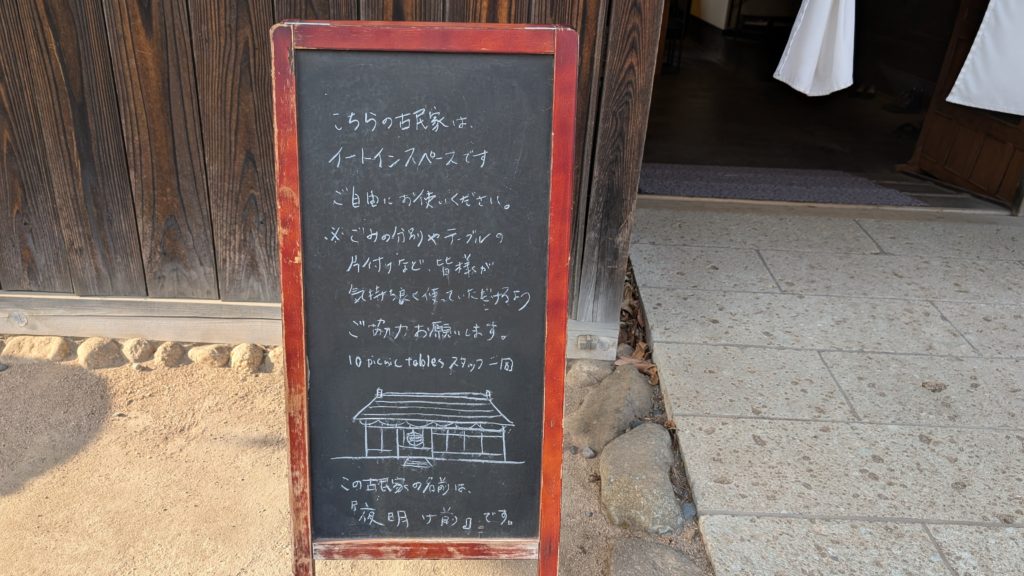 こちらの古民家は、
イートインスペースです
ご自由にお使いください。
※ごみの分別やテーブルの
片付けなど、皆様が
気持ち良く使っていただけるよう
ご協力お願いします。
10 picnic tables スタッフ一同
この古民家の名前は、
『夜明け前』です。